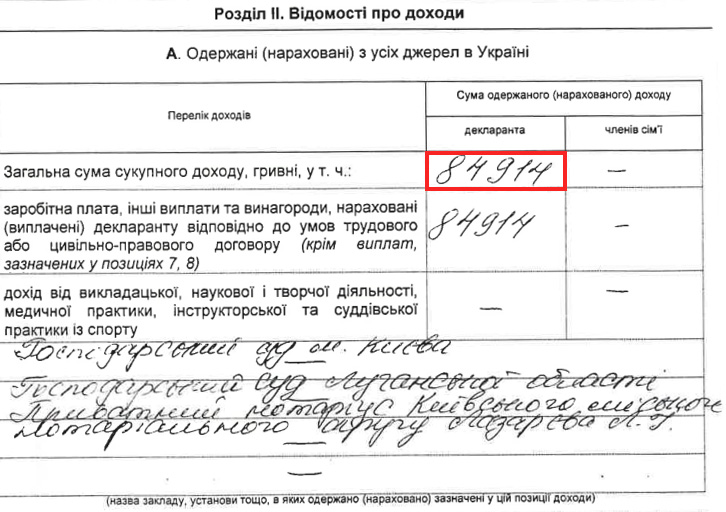 Розділ ІІ. Відомості про доходи
А. Одержані (нараховані) з усіх джерел в Україні
Перелік доходів
Сума одержаного (нарахованого) доходу
декларанта
членів сім’ї
Загальна сума сукупного доходу, гривні, у т. ч.:
84914
—
заробітна плата, інші виплати та винагороди, нараховані
(виплачені) декларанту відповідно до умов трудового
або цивільно-правового договору (крім виплат,
зазначених у позиціях 7, 8)
84914
—
дохід від викладацької, наукової і творчої діяльності,
медичної практики, інструкторської та суддівської
практики із спорту
—
—
Господарський суд м. Києва
Господарський суд Луганської області
Приватний нотаріус Київського міського
нотаріального округу Лазарєва Л.І.
—
(назва закладу, установи тощо, в яких одержано (нараховано) зазначені у цій позиції доходи)